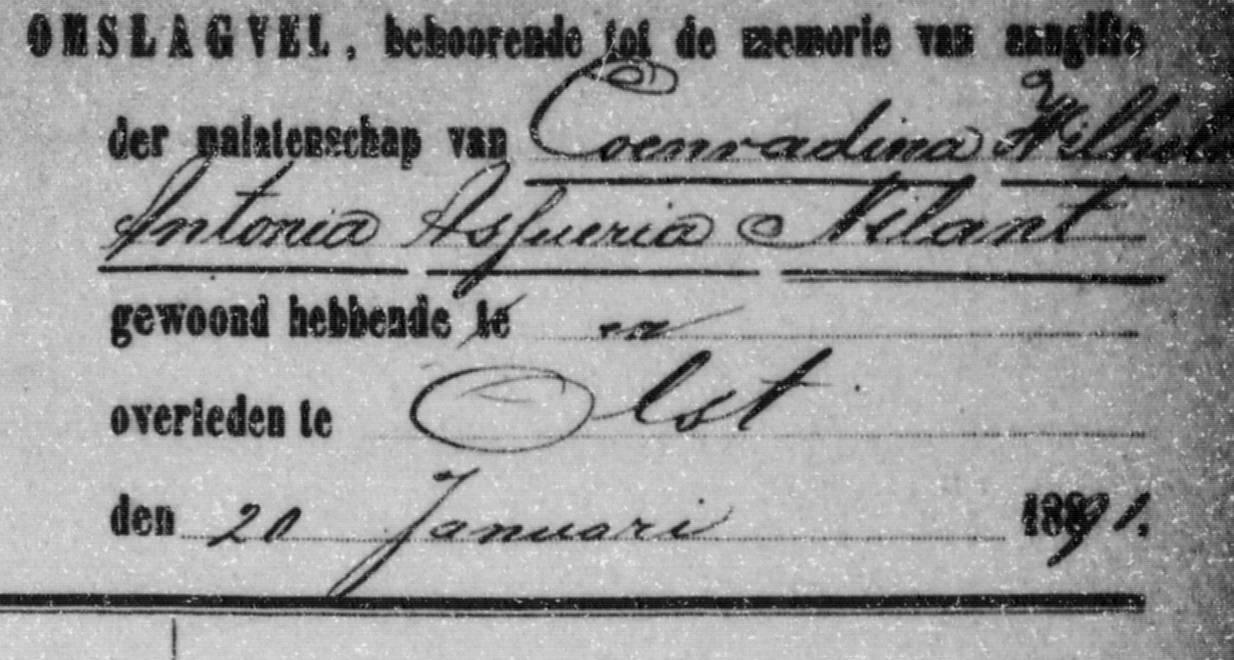 OMSLAGVEL, behoorende tot de memorie van aangifte
der nalatenschap van Coenradina Wilhelm
Antonia Asfueria Nilant
gewoond hebbende te en
overleden te Olst
den 20 Januari 1891.